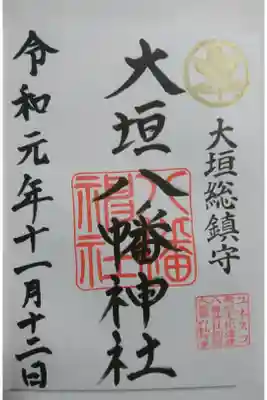 大垣総鎮守
大垣八幡神社
八幡神社
令和元年十一月十二日
ユネスコ